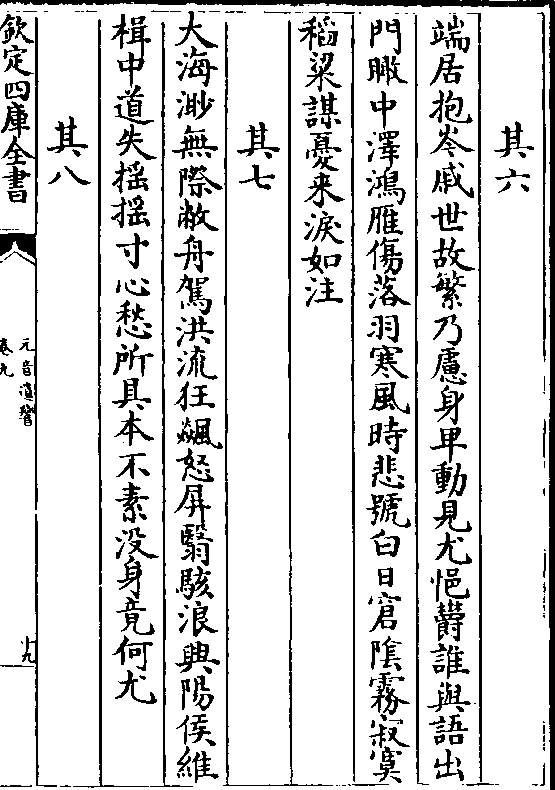 其六
端居抱岑戚世故繁乃慮身卑動見尤悒欝誰與語出
門瞰中澤鴻雁傷落羽寒風時悲號白日窘陰霧寂寞
稻粱謀憂来淚如注
其七
大海渺無際敝舟駕洪流狂飆怒屏翳駭浪興陽侯維
楫中道失摇摇寸心愁所具本不素没身竟何尤
其八
欽定四庫全書
元音遺響
卷九
十九